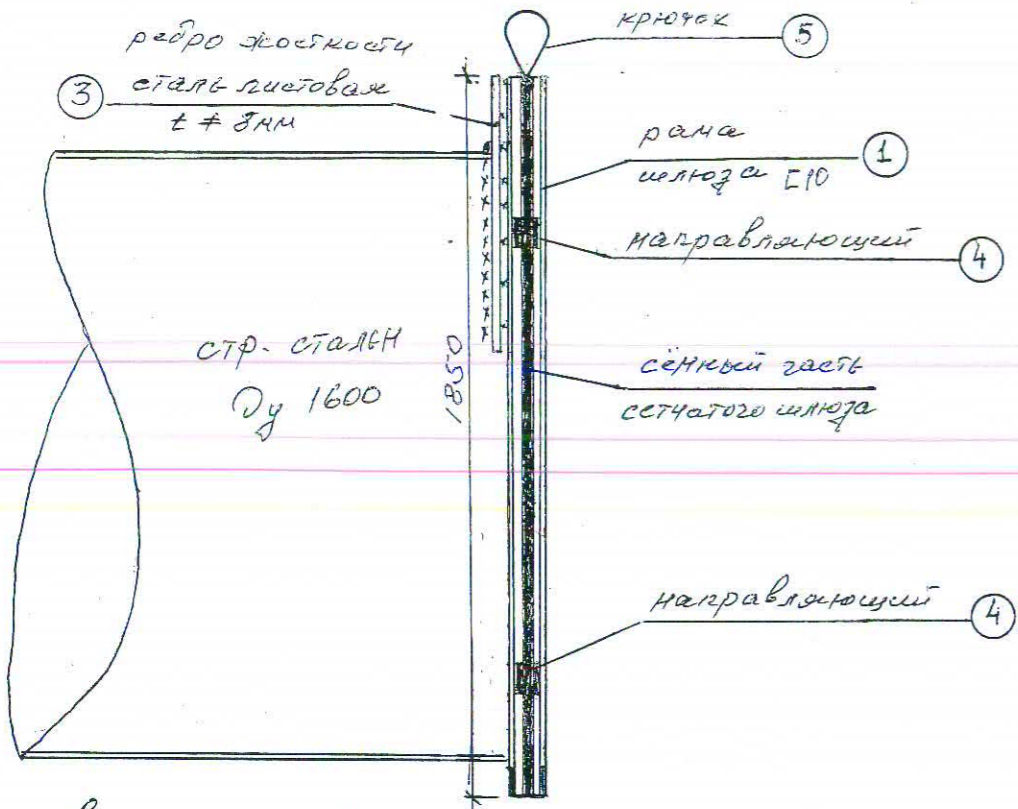 крючек
5
ребро жосткости
3
сталь листовая
t ≠ 8мм
рама
1
шлюза [10
направляющий
4
стр. стальн
Ду 1600
1850
сёмный часть
сетчатого шлюза
направляющий
4